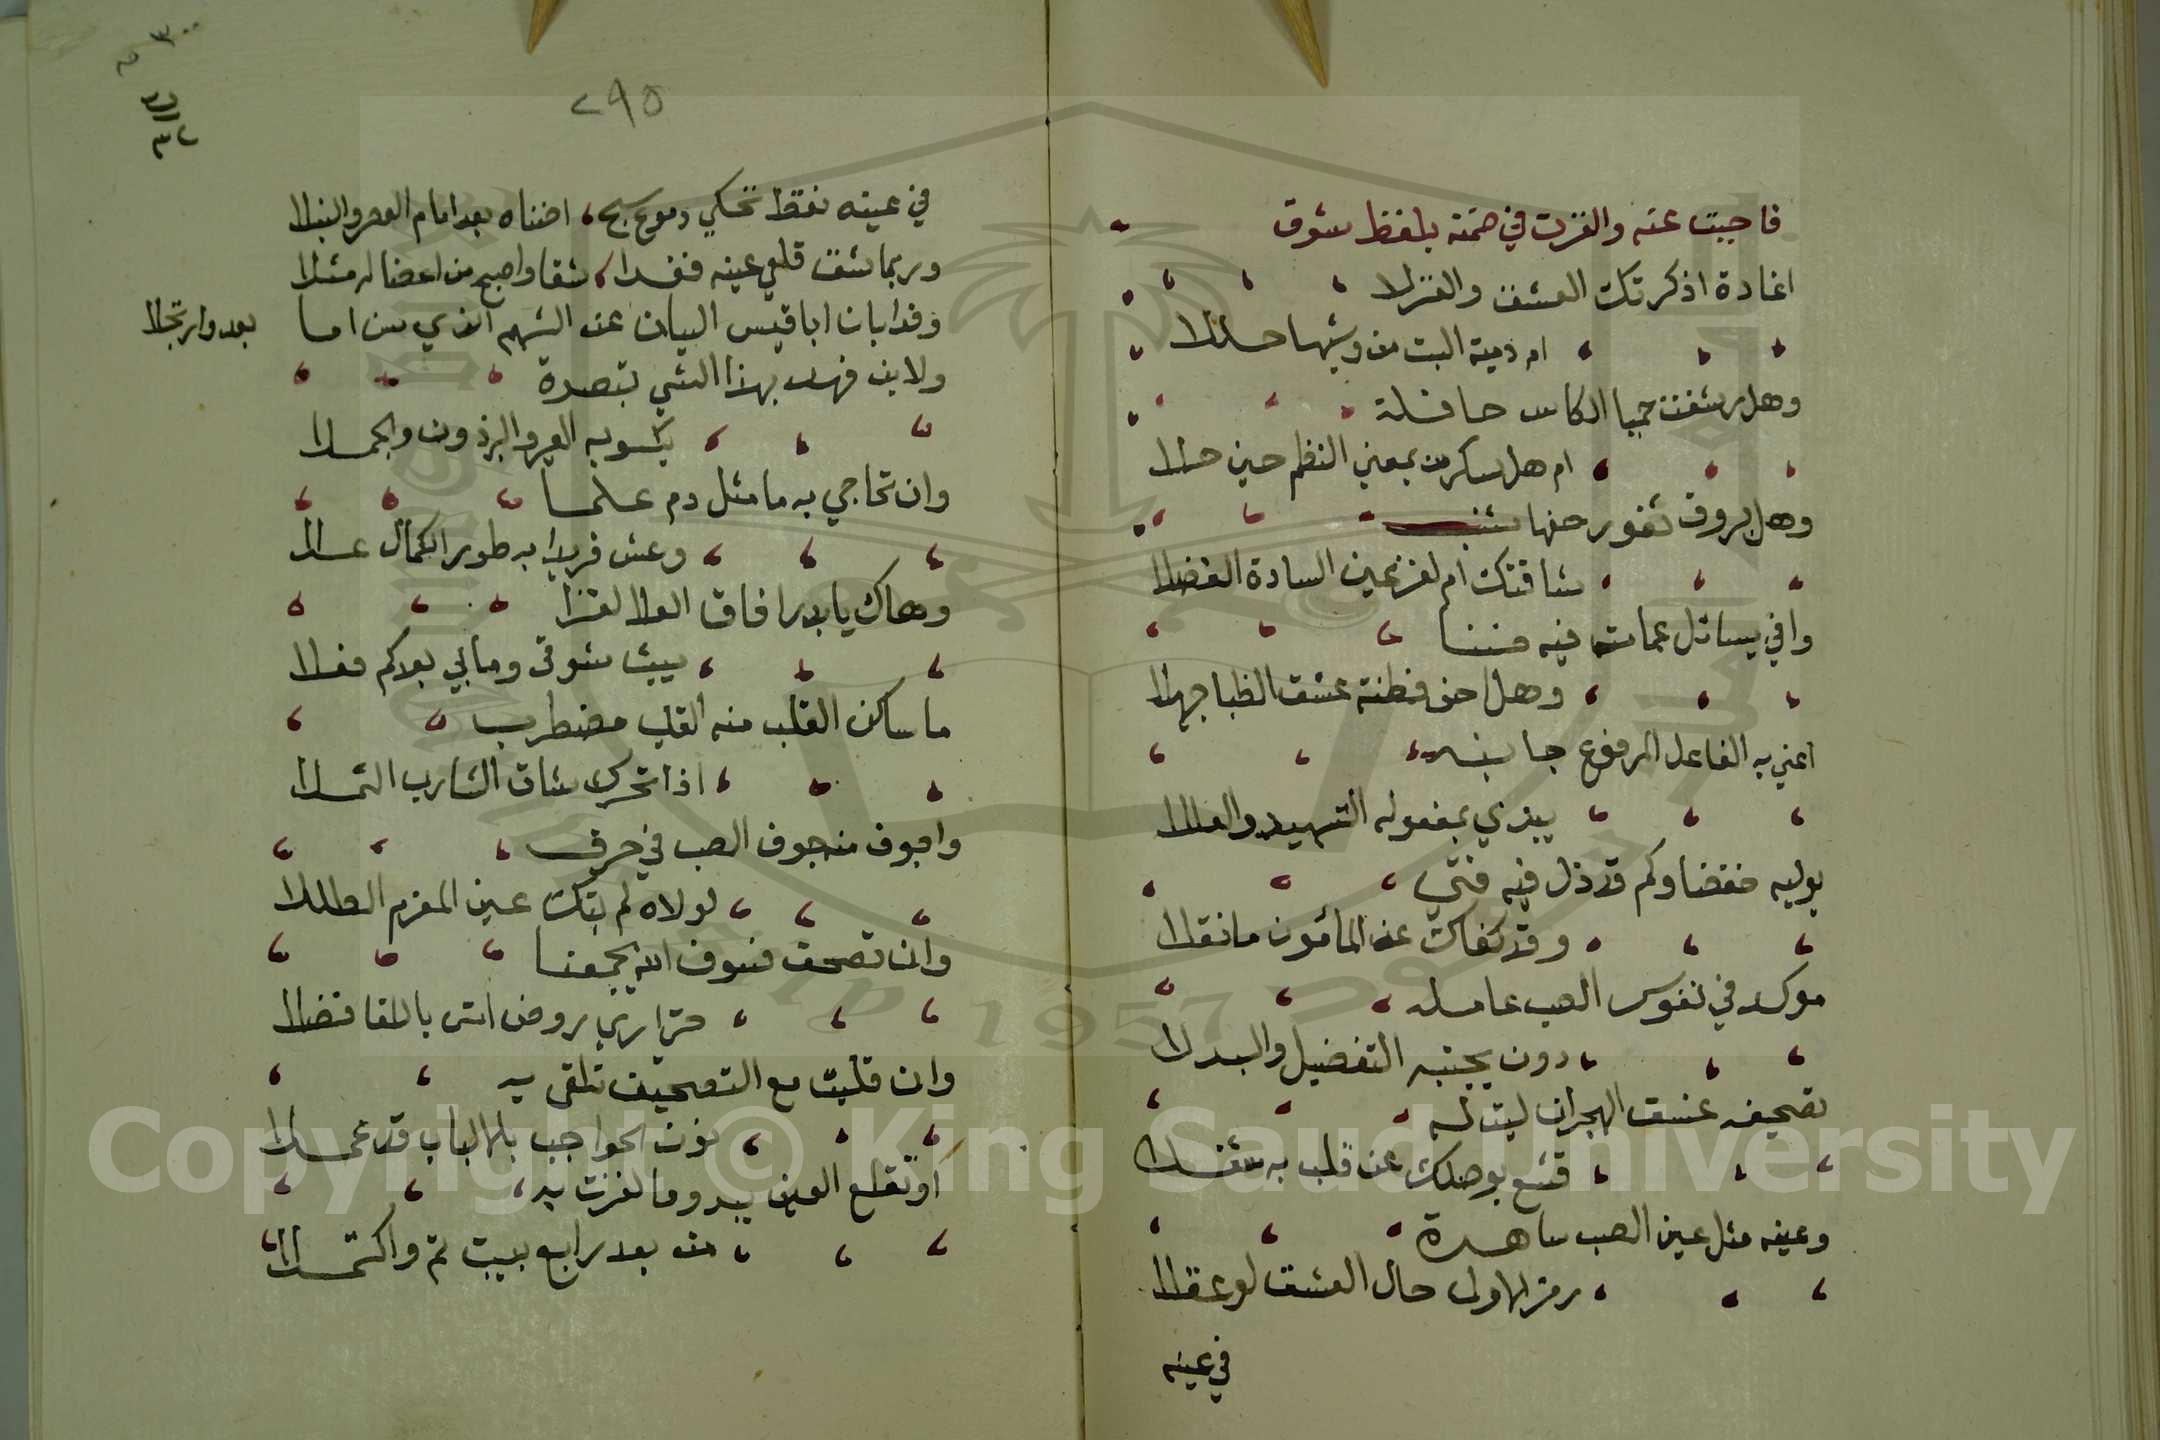 فاجبت عنه والغزت في ضمنه بلفظ شوق
اغادة اذكرتك العشق والغزلا
ام دمية البت من وشيها حللا
وهل رشفت حميا الكاس حافلة
ام هل سكرت بمعنى النظم حين حلا
وهل بروق ثغور حفها شنب
شاقتك ام لغز عين السادة الفضلا
وافى يسائل عما فيه
وهل اخو فطنة عشق الظبا جهلا
اعني به الفاعل المرفوع جانبه
يبدي بمفعوله التسهيد والعللا
يوليه خفضا وكم قد ذل فيه فتى
وقد كفاك عن المأمون ما نقلا
موكد في نفوس الصب عامله
دون يجتبه التفضيل والبدلا
تصحيفه عنسق الهجران ليت له
قنع بوصلك عن قلب به شغلا
وعينه مثل عين الصب ساهدة
رمز لها ولى حال العشق لو عقلا
في عينه
٢٩٥
في عينه نقط تحكي دموع سج اضناه بعد امام العصر والنبلا
وربما شق قلبي عينه فغدا شقا واصبح من اعضا له مثلا
وقد ابان ابا قيس البيان عن الشهم الذي من اما
بعد وارتجلا
ولابن فهد بهذا الشي تبصرة
يكسو به العير والبرذون والجملا
وان تحاجي به ما مثل دم علما
وعش فريدا به طور الكمال علا
وهاك يا بدر افاق العلا لغزا
يبث شوقي وما بي بعدكم فعلا
ما ساكن القلب منه القلب مضطرب
اذا تحرك شاق الشارب الثملا
واجوف منجوف الصب في حرق
لولاه لم تبك عين المغرم الطللا
وان تصحف فسوف الله يجمعنا
حتى ارى روض انس باللقا فضلا
وان قلبت مع التصحيف تلقى به
نون الحواجب بالالباب قد عملا
او تقلع العين يبدو ما لغزت به
من بعد رابع بيت تم واكتملا
Copyright © King Saud University
1957